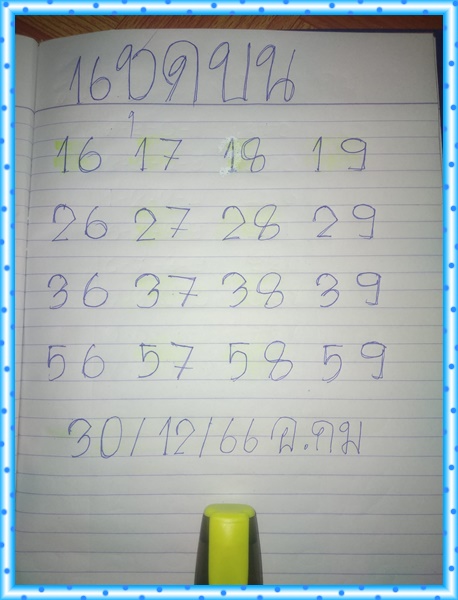 16ชุดบน
16 17 18 19
26 27 28 29
36 37 38 39
56 57 58 59
30/12/66 อ.คม